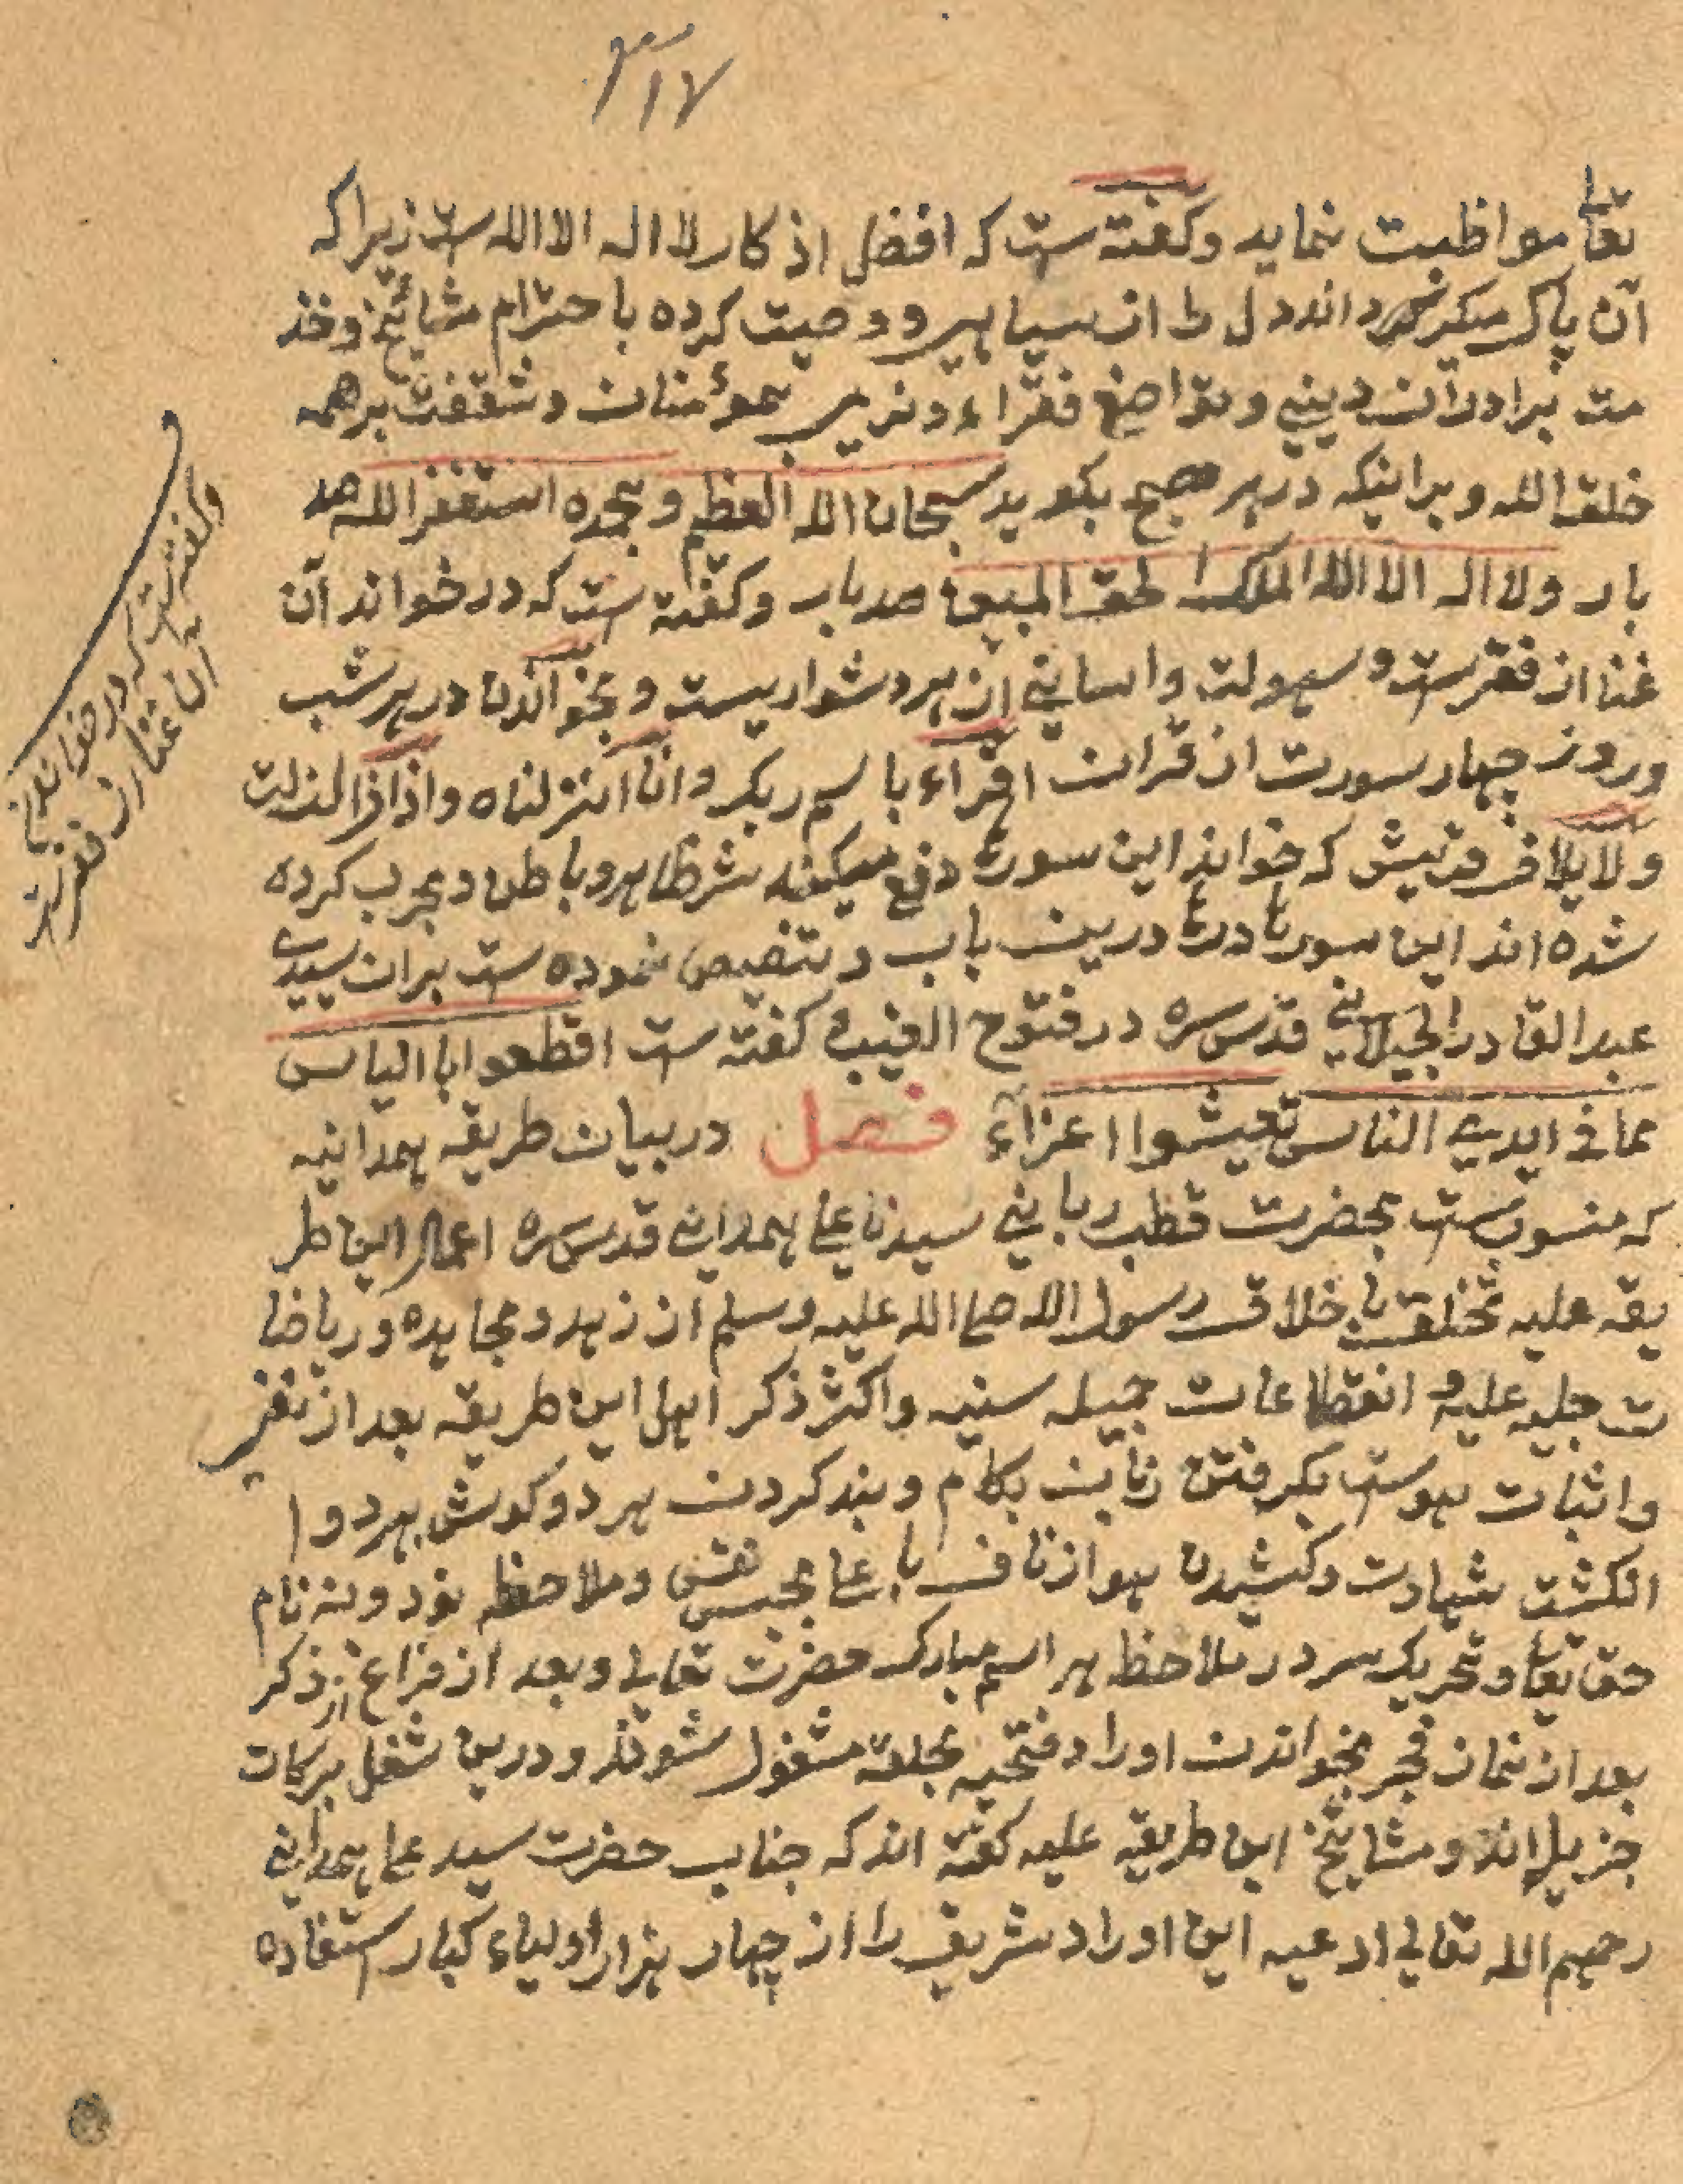 ۳۱۷
تعالی مواظبت نماید وگفته ست که افضل اذکار لا اله الا الله ست زیراکه
آن پاک میگرداند دل را از سیاهی و وصیت کرده باحترام مشائخ وخذ
مت برادران دینی وتواضع فقراء و نرمی بمؤمنان وشفقت بر همه
خلق الله وبراینکه در هر صبح بگوید سبحان الله العظیم وبحمده استغفر الله صد
بار ولا اله الا الله الملک الحق المبین صد بار وگفته ست که در خواند آن
غنا از فقرست وسهولت واسانی از هر دشواریست وبخواندن در هر شب
وروز چهار سورت از قرآن اقراء باسم ربک وانا انزلناه واذا زلزلت
ولایلاف قریش که خواند این سورتها دفع میکند شر ظاهر وباطن ومجرب کرده
شده اند این سورتها درین باب وتنصیص نموده ست بران سیدی
عبد القادر الجیلانی قدس سره در فتوح الغیب گفته ست اقطعوا ابا الیاس
مما فی ایدی الناس تعیشوا اعزاء فصل در بیان طریقه همدانیه
که منسوب ست بحضرت قطب ربانی سیدنا علی همدانی قدس سره اعمال این طر
یقه علیه تخلق باخلاق رسول الله صلی الله علیه وسلم از زهد ومجاهده وریاضا
ت جلیه علیه و انقطاعات جمیله سنیه واکثر ذکر اهل این طریقه بعد از نفی
واثبات هوست بگرفتن زبان بکام وبند کردن هر دو گوش بهر دو ا
نگشت شهادت وکشیدن هو از ناف باعلی بحبس نفس وملاحظه نود ونه نام
حق تعالی وتحریک سر در ملاحظه هر اسم مبارک حضرت تعالی وبعد از فراغ از ذکر
بعد از نماز فجر بخواندن اوراد فتحیه بحلقه مشغول شوند ودرین شغل برکات
جزیل اند ومشایخ این طریقه علیه گفته اند که جناب حضرت سید علی همدانی
رحمهم الله تعالی ادعیه این اوراد شریف را از چهار هزار اولیاء کبار استفاده
وگفته ست که در خواندن
آن غنا از فقرست